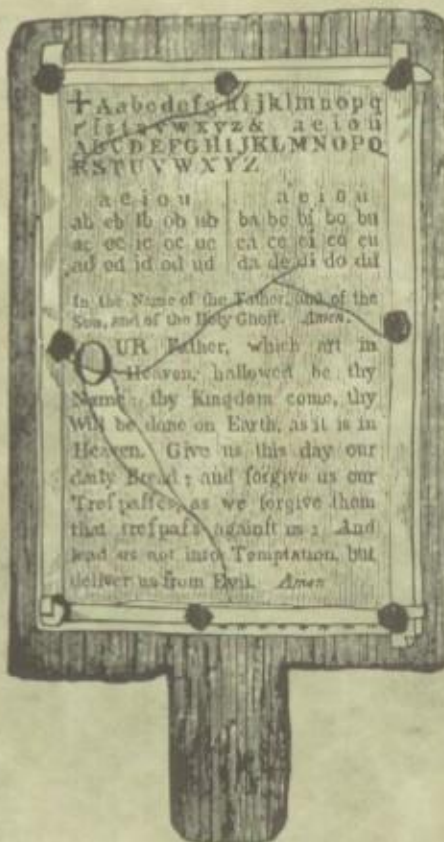 +Aabcdefghijklmnopq
rſstuvwxyz& aeiou
ABCDEFGHIJKLMNOPQ
RSTUVWXYZ
a e i o u a e i o u
ab eb ib ob ub ba be bi bo bu
ac ec ic oc uc ca ce ci co cu
ad ed id od ud da de di do du
In the Name of the Father, and of the
Son, and of the Holy Ghoſt. Amen.
OUR Father, which art in
Heaven, hallowed be thy
Name; thy Kingdom come, thy
Will be done on Earth, as it is in
Heaven. Give us this day our
daily Bread; and forgive us our
Treſpaſſes, as we forgive them
that treſpaſs againſt us: And
lead us not into Temptation, but
deliver us from Evil. Amen